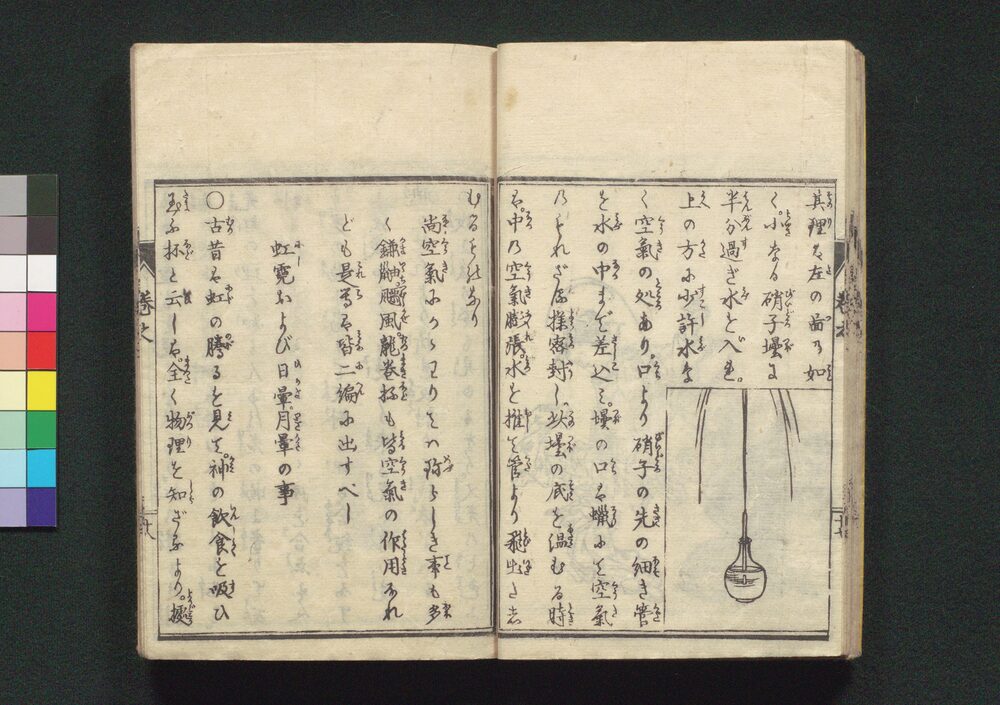 其理は左の圖の如
く小なる硝子壜に
半分過ぎ水を入れ
上の方に少許水な
く空氣の処あり口より硝子の先の細き管
を水の中まで差込み壜の口は蠟にて空氣
乃もれざる様密封し此壜の底を温むる時
は中乃空氣膨張水を推て管より飛出さし
むるもの也
尚空氣にかゝわりては珍らしき事も多
く鎌鼬颶風龍巻抔も皆空氣の作用なれ
ども是等は皆二編に出すべし
虹霓および日暈月暈の事
〇古昔は虹の騰るを見て神の飲食を吸ひ
玉ふ抔と云しは全く物理を知ざるより